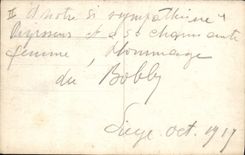 A notre si sympathique
et a sa charmante
femme, Hommage
du Bobby
Liège oct. 1917